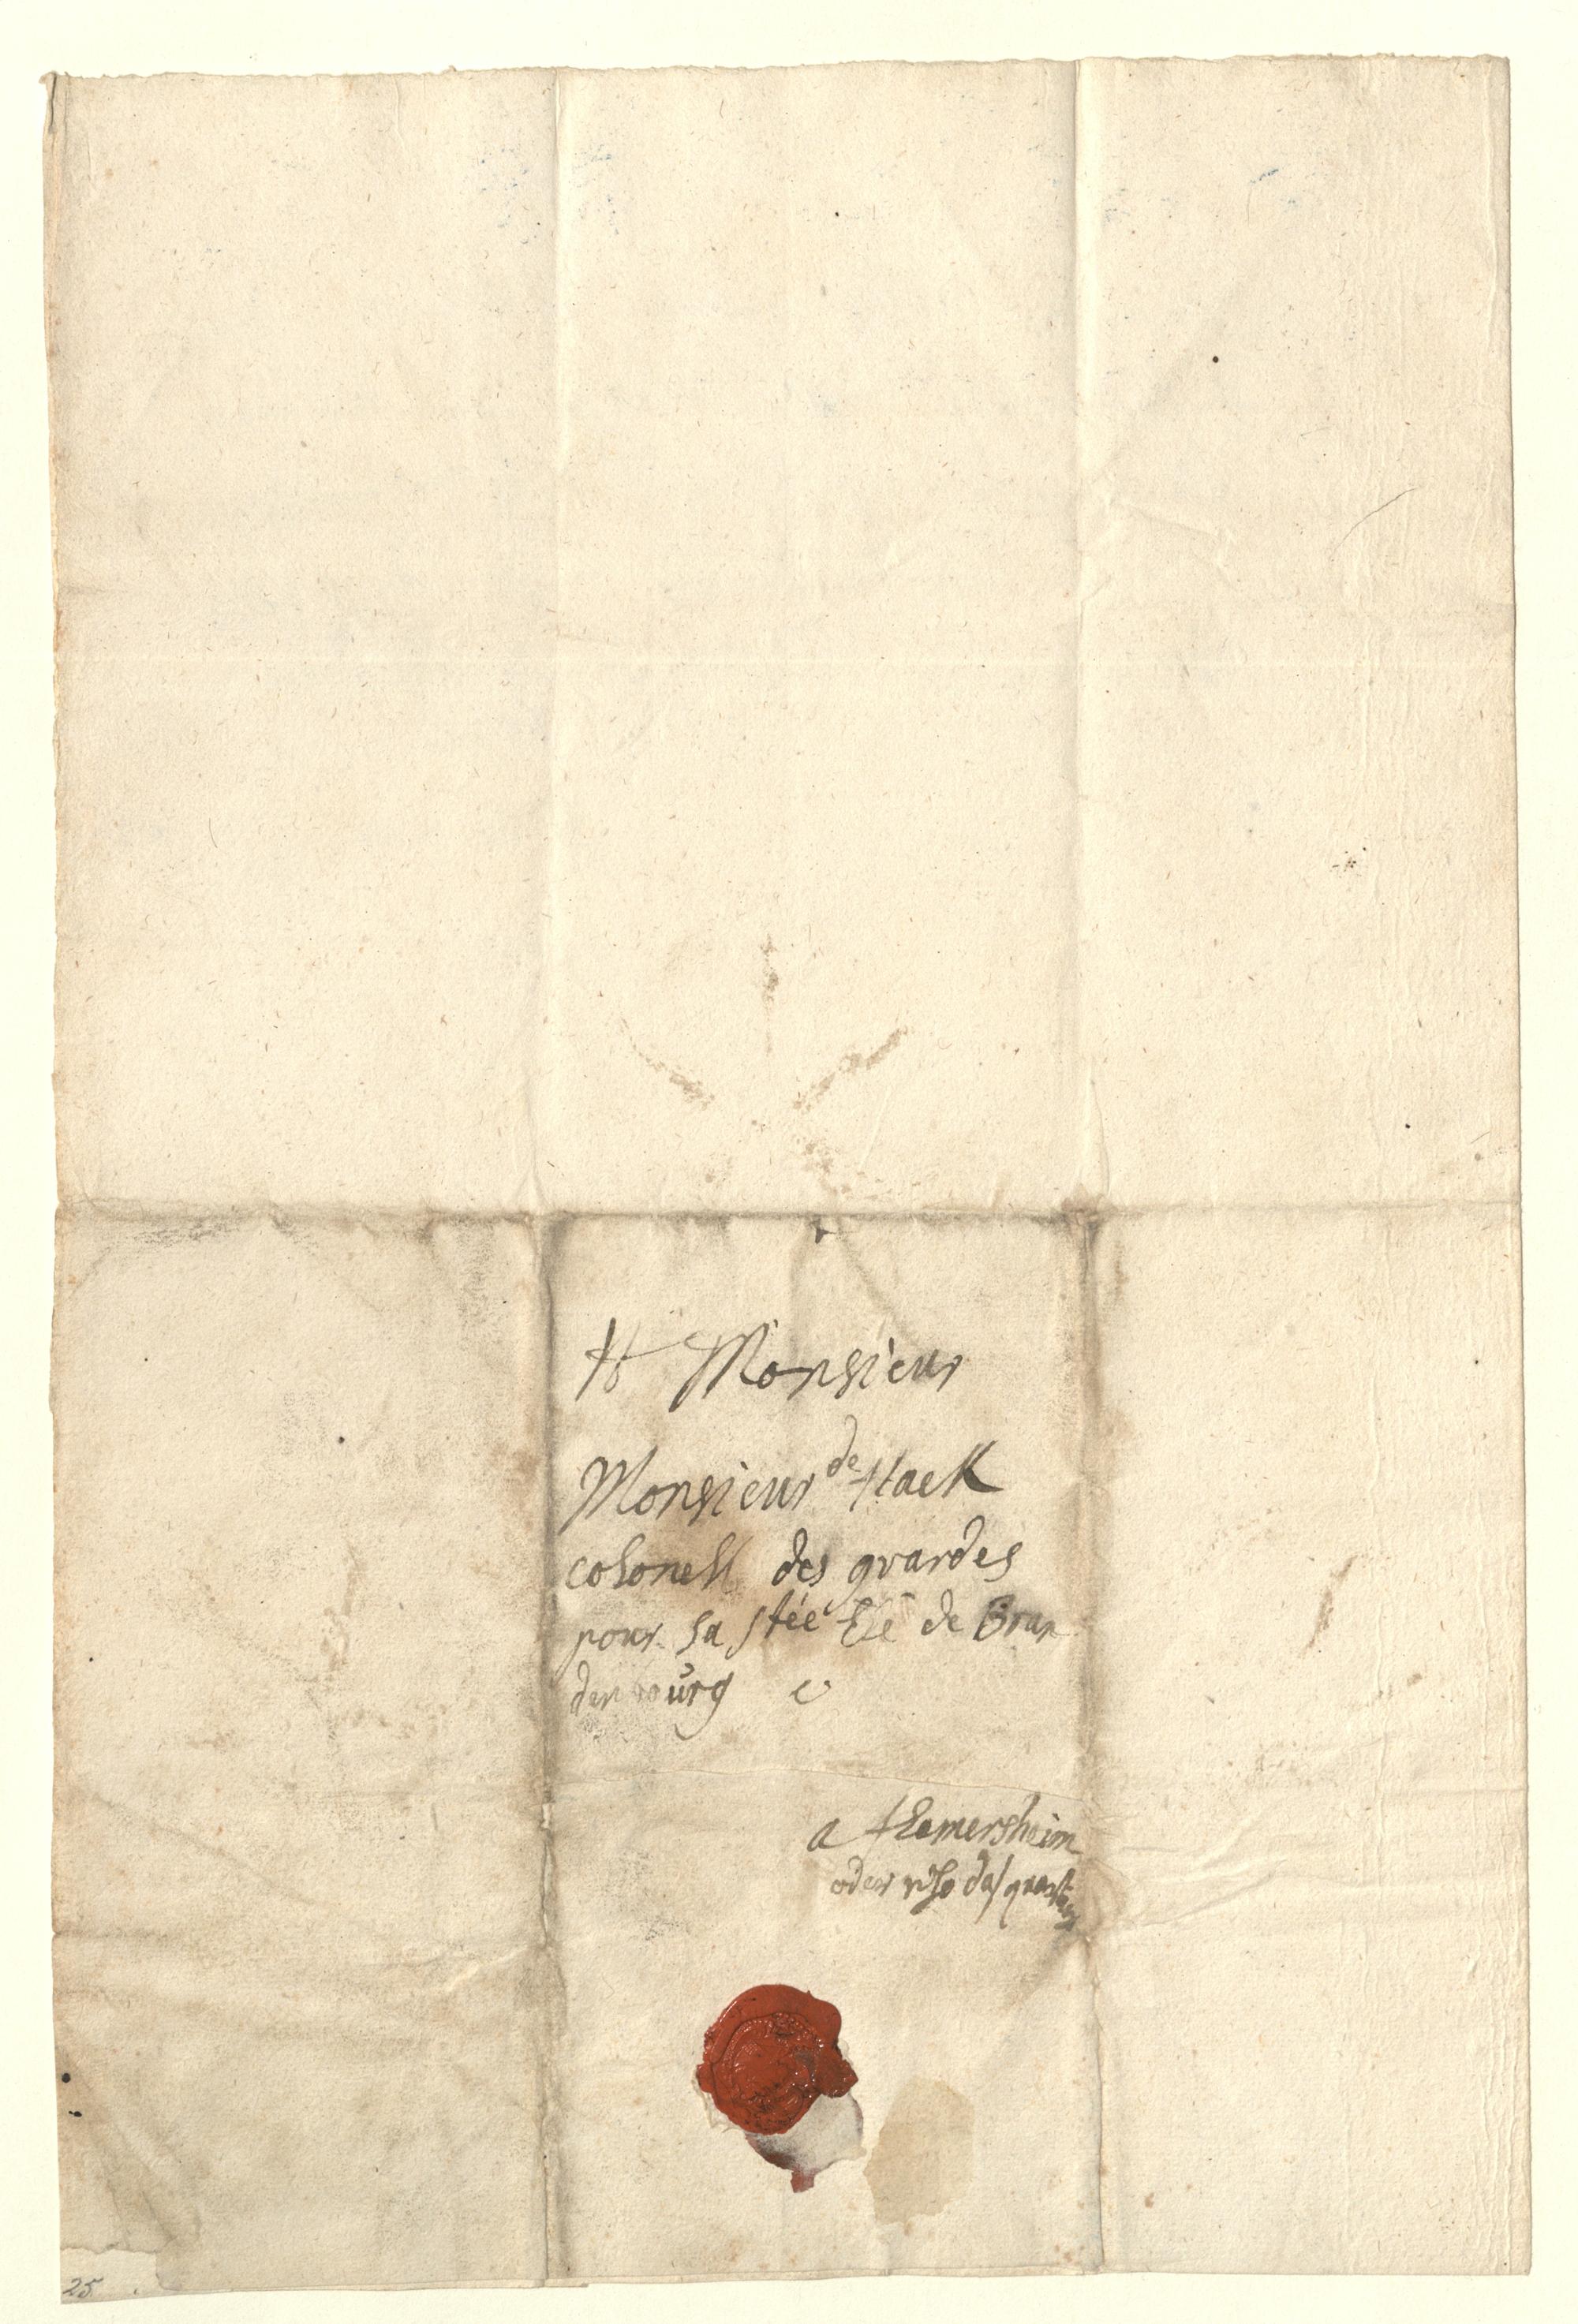 A Monsieur
Monsieur de Hack
colonell des guardes
pour sa stée Ele de Bran
denbourg
a Hemersheim
oder wo das quartier
25